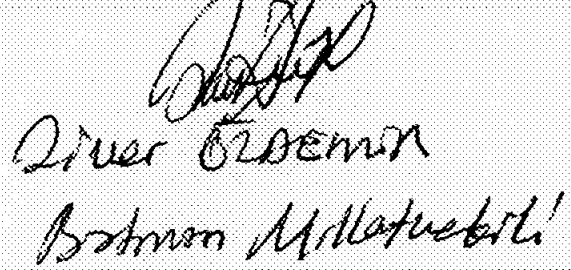 Ziver ÖZDEMİR
Batman Milletvekili